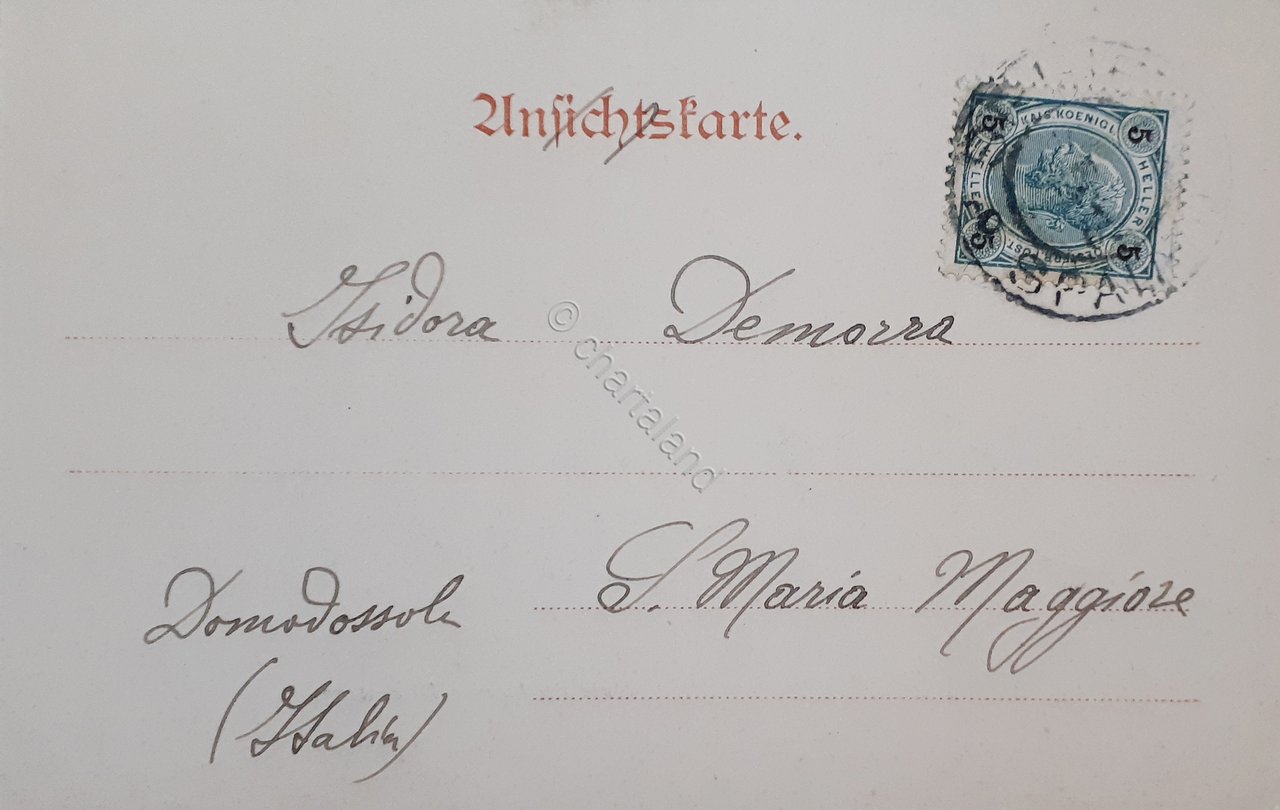 Ansichtskarte.
5 KAIS. KOENIGL. 5
HELLER HELLER
5 5
SPAL
Isidora Demorra
© chartaland
S. Maria Maggiore
Domodossola
(Italia)